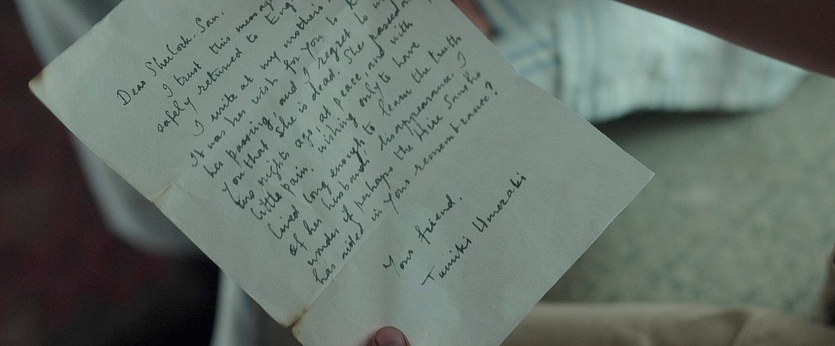 Dear Sherlock-San.
I trust this message
safely returned to Eng
I write at my mother's
It was her wish for you to k
her passing, and I regret to
you that she is dead. She passed
two nights ago, at peace, and with
little pain, wishing only to have
lived long enough to learn the truth
of her husband's disappearance. I
wonder if perhaps the Hire Sansho
has aided in your remembrance?
Your friend.
Tamiki Umezaki